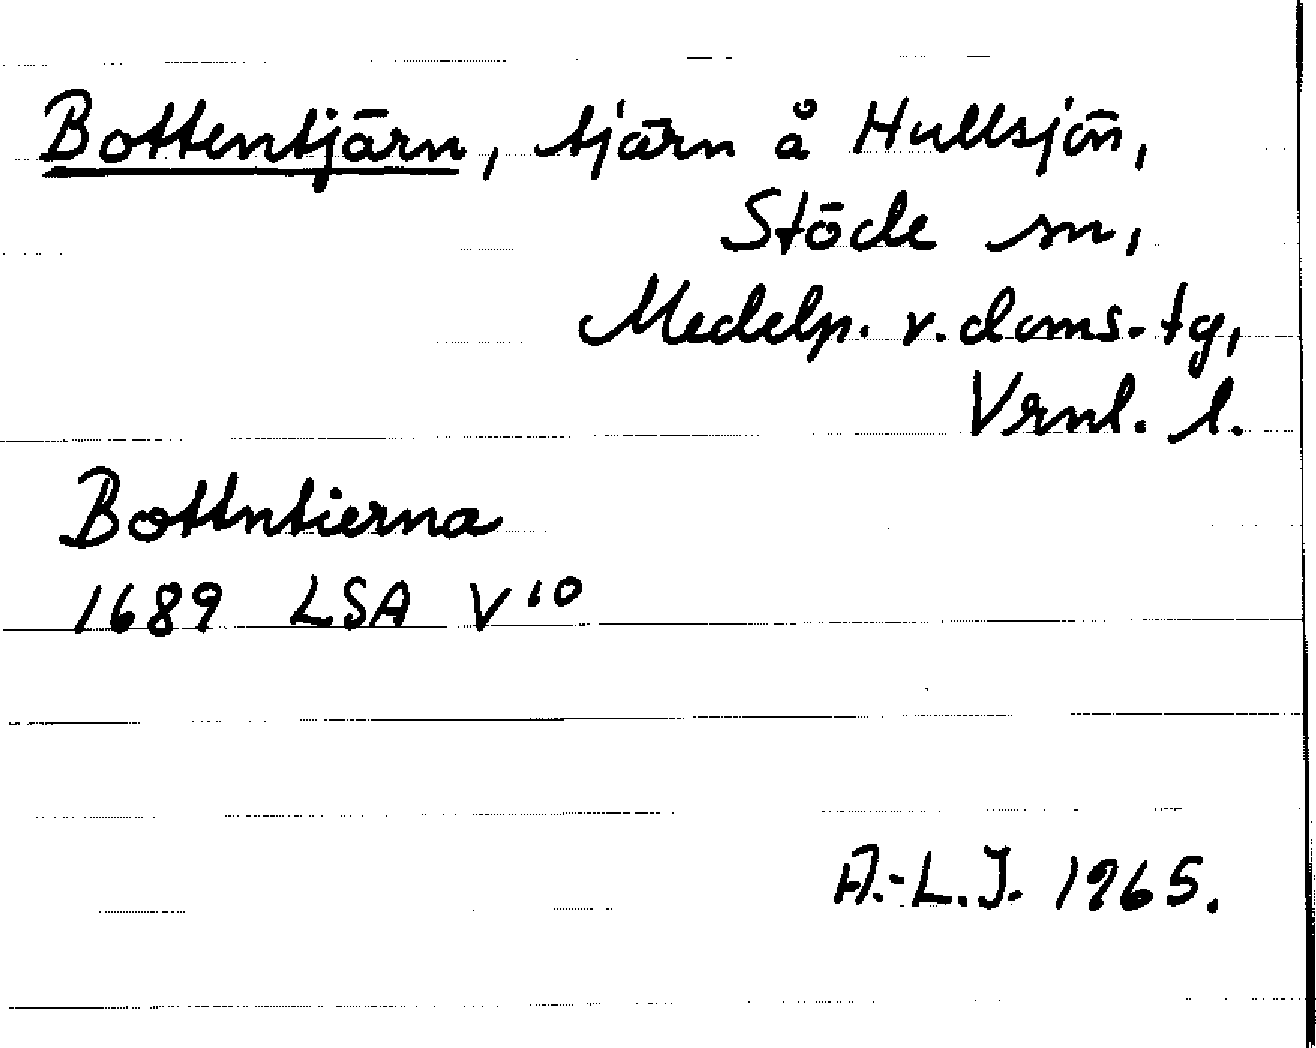 Bottentjärn, tjärn å Hullsjön,
Stöde sn,
Medelp. v. doms. tg,
Vrnl. l.
Bottntierna
1689 LSA V¹⁰
A.-L.J. 1965.